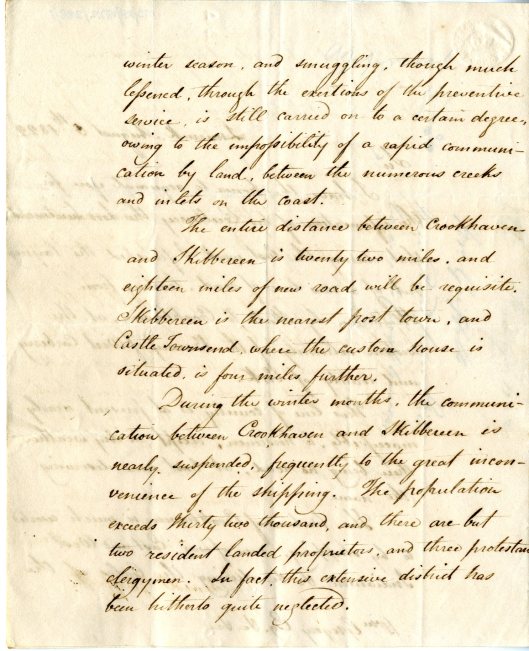 winter season, and smuggling, though much
lessened, through the exertions of the preventive
service, is still carried on to a certain degree,
owing to the impossibility of a rapid communi-
cation by land, between the numerous creeks
and inlets on the coast.
The entire distance between Crookhaven
and Skibbereen is twenty two miles, and
eighteen miles of new road will be requisite.
Skibbereen is the nearest post town, and
Castle Townsend, where the custom house is
situated, is four miles further.
During the winter months, the communi-
cation between Crookhaven and Skibbereen is
nearly suspended, frequently to the great incon-
venience of the shipping. The population
exceeds thirty two thousand, and there are but
two resident landed proprietors, and three protestan
clergymen. In fact, this extensive district has
been hitherto quite neglected.